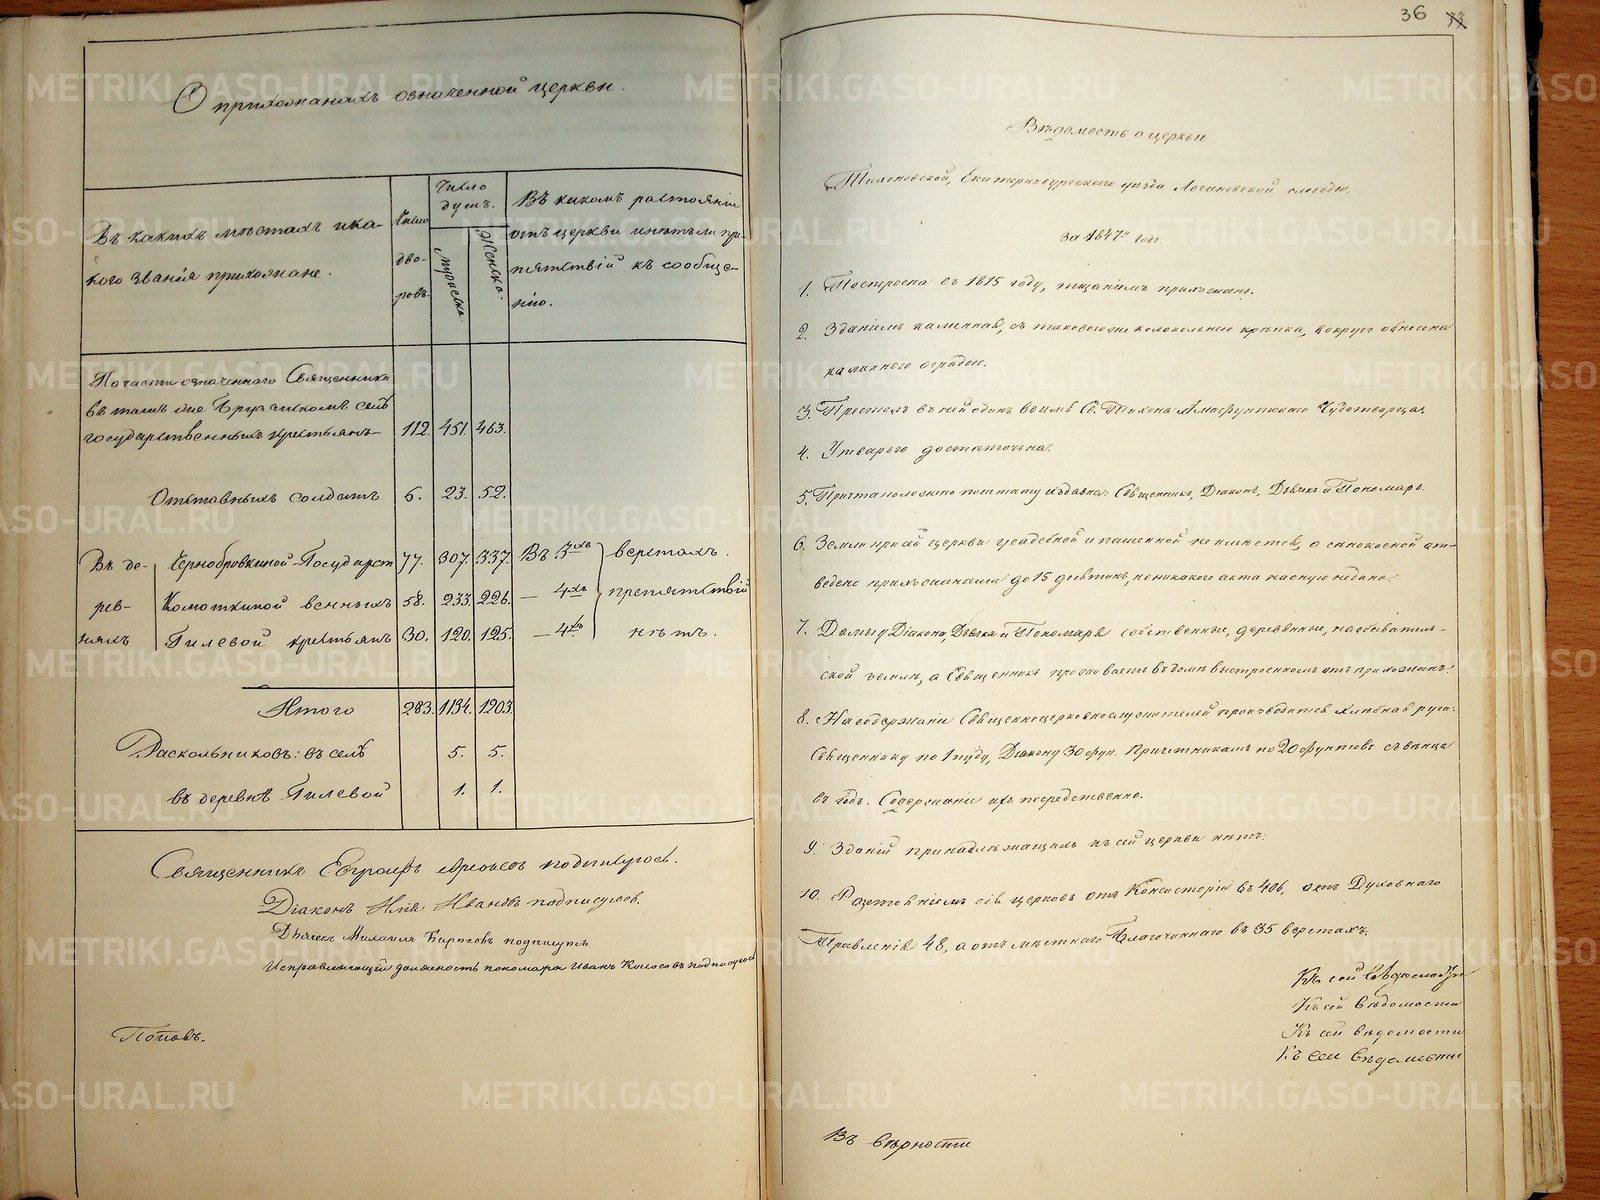 О прихожанахъ означенной церкви.
Въ какихъ мѣстахъ и ка-
кого званія прихожане.
Число
дво-
ровъ
Число
душъ.
мужска.
женска.
Въ какомъ разстояніи
отъ церкви и нѣтъ ли пре-
пятствій къ сообще-
нію.
По части означеннаго Священника
въ томъ же селѣ
государственныхъ крестьянъ 112. 451. 463.
Отставныхъ солдатъ 6. 23. 52.
Въ де- Чернобровкиной Государст 77. 307. 337. Въ 3хъ верстахъ.
рев- Комоткиной венныхъ 58. 233. 226. — 4хъ препятствій
няхъ Гилевой крестьянъ 30. 120. 125. — 4хъ нѣтъ.
Итого 283. 1134. 1203.
Раскольниковъ: въ селѣ 5. 5.
въ деревнѣ Гилевой 1. 1.
Священникъ подписуюсь.
Діаконъ Илія Ивановъ подписуюсь.
Дьячекъ Михаилъ Бирюковъ подписуюсь
Исправляющій должность пономаря Иванъ Колосовъ подписуюсь
Поповъ.
36
Вѣдомость о церкви
Тихоновской, Екатеринбургскаго уѣзда Логиновской слободы.
за 1847й годъ.
1. Построена въ 1815 году, тщаніемъ прихожанъ.
2. Зданіемъ каменная, съ таковою же колокольнею крѣпка, вокругъ обнесена
каменною оградою.
3. Престолъ въ ней одинъ во имя Св. Тихона Амафунтскаго Чудотворца.
4. Утварью достаточна.
5. Причта положено по штату издавна: Священникъ, Діаконъ, Дьячекъ и Пономарь.
6. Земли при сей церкви усадебной и пашенной не имѣется, а сѣнокосной от-
ведено прихожанами до 15 десятинъ, но никакого акта на оную не дано.
7. Домы у Діакона, Дьячка и Пономаря собственные, деревянные, на обыватель-
ской землѣ, а Священникъ проживаетъ въ домѣ выстроенномъ отъ прихожанъ.
8. На содержаніе Священноцерковнослужителей производится хлѣбная руга:
Священнику по 1 пуду, Діакону 30 фун. Причетникамъ по 20 фунтовъ съ вѣнца
въ годъ. Содержаніе ихъ посредственно.
9. Зданій принадлежащихъ къ сей церкви нѣтъ.
10. Разстояніемъ сія церковь отъ Консисторіи въ 406, отъ Духовнаго
Правленія 48, а отъ мѣстнаго Благочиннаго въ 35 верстахъ.
Къ сей вѣдомости
Къ сей вѣдомости
Къ сей вѣдомости
Къ сей вѣдомости
Въ вѣрности
METRIKI.GASO-URAL.RU